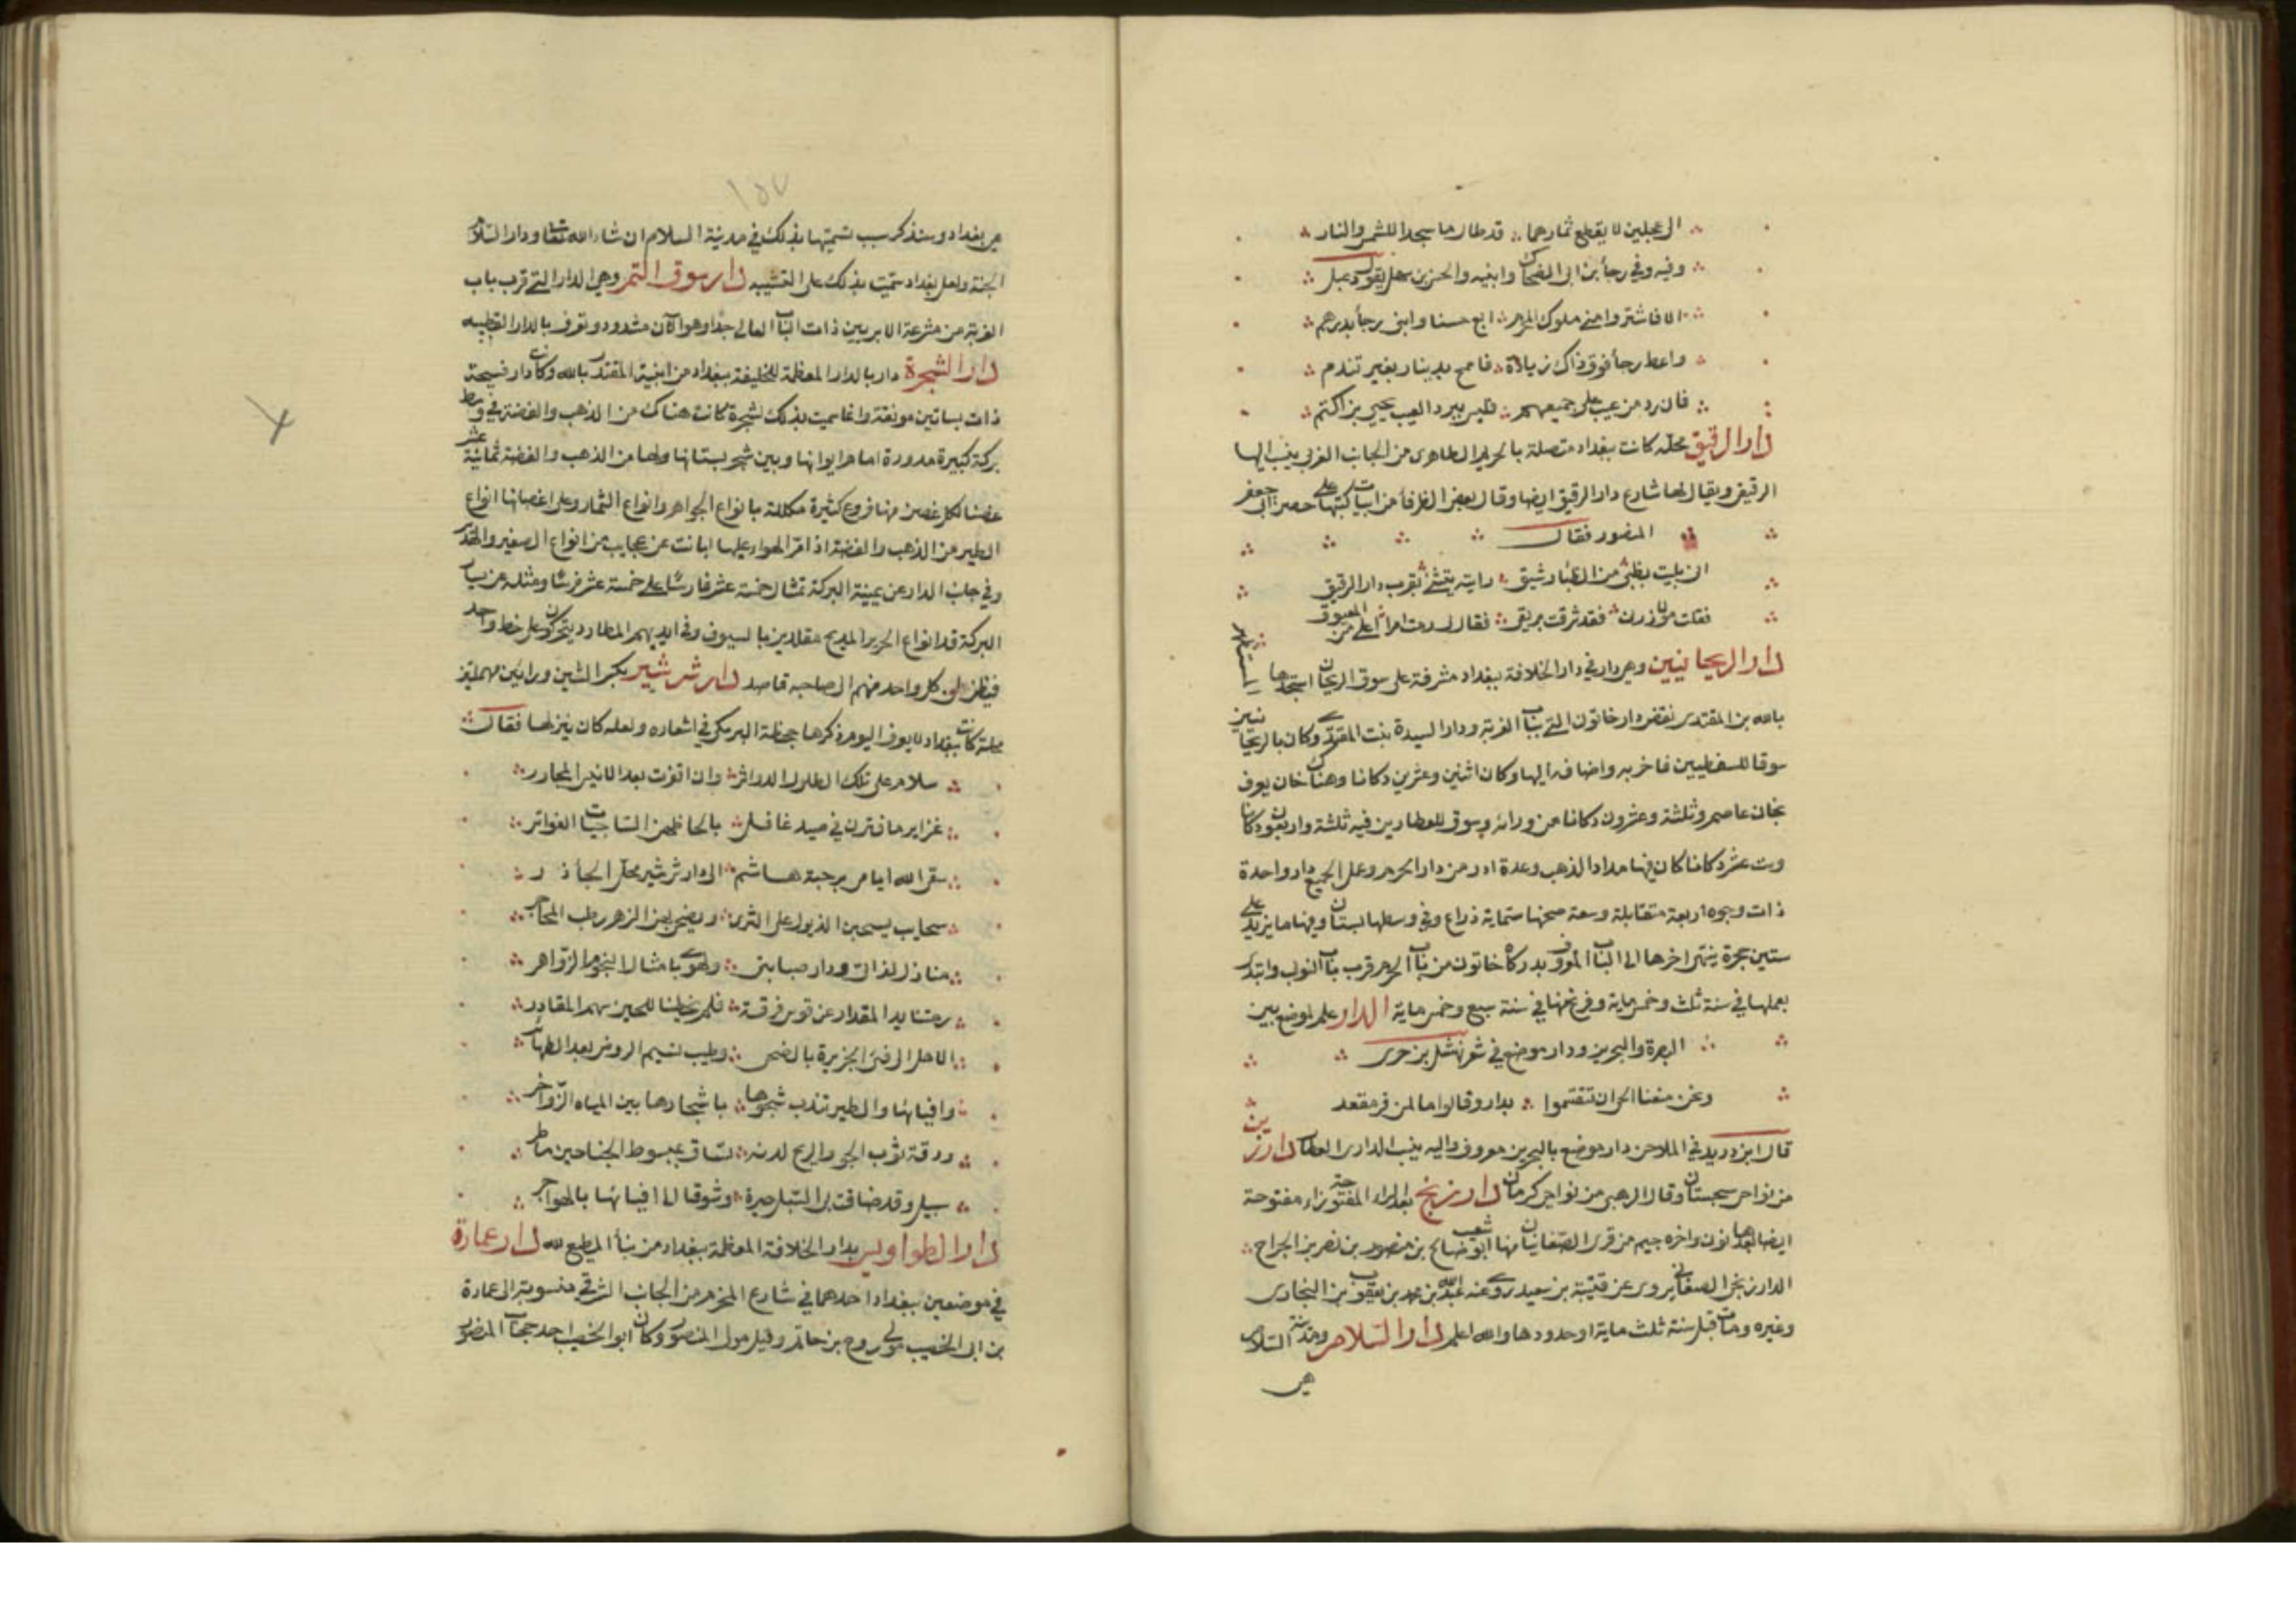 الرعجلين لا يقطع ثمارهما قد طار ما سجدا للشمس والنار
وفيه وفي رجأ بن ابى الضحاك وابنيه والحسن بن سهل يقول دعبل
الا فاشتروا منى ملوك المخرم ابع حسنا وابنى رجأ بدرهم
واعط رجأ فوق ذاك زيادة فامح بدينار بغير تندم
فان رد من عيب على جميعهم فليس يرد العيب يحيى بن اكثم
دار الرقيق محلة كانت ببغداد متصلة بالحريم الطاهرى من الجانب الغربى ينسب اليها
الرقيق ويقال لها شارع دار الرقيق ايضا وقال بعض الظرفأ من ابيات كتبها على حصر ابى جعفر
المنصور فقال
انى بليت بظبى من الظبأ رشيق رايته يتثنى بقرب دار الرقيق
فقلت مولاى زرنى فقد شرقت بريقى فقال لى رمت امرا اعلى من العيوق
دار الريحانيين وهى دار في دار الخلافة ببغداد مشرفة على سوق الريحان استجدها المستظهر
بالله بن المقتدى نقض دار خاتون التى بباب الغربة ودار السيدة بنت المقتدى وكان بالريحانيين
سوقا للسفطيين فاخربه واضافه اليها وكان اثنين وعشرين دكانا وهناك خان يعرف
بخان عاصم وثلثة وعشرون دكانا من ورائه وسوق للعطارين فيه ثلثة واربعون دكانا
وست عشر دكانا كان فيها مداد الذهب وعدة ادر من دار الحرم وعمل الجميع دار واحدة
ذات وجوه اربعة متقابلة وسعة صحنها ستماية ذراع وفي وسطها بستان وفيها ما يزيد على
ستين حجرة ينتهى اخرها الى الباب المعروف بدركاه خاتون من باب الحرم قرب باب النوبى وابتدى
بعملها في سنة ثلث وخمس ماية وفرغ منها في سنة سبع وخمس ماية الدار علم لموضع بين
البصرة والبحرين ودار موضع في شعر نهشل بن حرى
ونحن منعنا الحى ان تتقسموا بدار وقالوا ما لمن فر مقعد
قال ابن دريد في الملاحن دار موضع بالبحرين معروف واليه ينسب الدارى العطار دارزين
من نواحى سجستان وقال الرهنى من نواحى كرمان دارزنج بعد الراء المفتوحة زاء مفتوحة
ايضا بعدها نون واخره جيم من قرى الصغانيان منها ابو شعيب صالح بن منصور بن نصر بن الجراح
الدارزنجى الصغانى يروى عن قتيبة بن سعيد روى عنه عبد الله بن محمد بن يعقوب البخارى
وغيره ومات قبل سنة ثلث ماية او حدودها والله اعلم دار السلام ومدينة السلام
هى
١٥٧
هى بغداد وسنذكر سبب تسميتها بذلك في مدينة السلام ان شاء الله تعالى ودار السلام
الجنة ولعل بغداد سميت بذلك على التشبيه دار سوق التمر وهى الدار التى قرب باب
الغربة من مشرعة الابريين ذات الباب العالى جدا وهو الآن مشدود وتعرف بالدار القطبيه
دار الشجرة دار بالدار المعظمة للخليفة ببغداد من ابنية المقتدر بالله وكان دار فسيحة
ذات بساتين مونقة وانما سميت بذلك لشجرة كانت هناك من الذهب والفضة في وسط
بركة كبيرة مدورة امام ايوانها وبين شجر بستانها ولها من الذهب والفضة ثمانية عشر
غصنا لكل غصن منها فروع كثيرة مكللة بانواع الجواهر وانواع الثمار وعلى اغصانها انواع
الطير من الذهب والفضة اذا مر الهواء عليها ابانت عن عجايب من انواع الصفير والهدير
وفي جانب الدار عن يمينة البركة تمثال خمسة عشر فارسا على خمسة عشر فرسا ومثله عن يسار
البركة قد انواع الحرير المديح مقلدين بالسيوف وفي ايديهم المطارد يتحركون على خط واحد
فيظن ان كل واحد منهم الى صاحبه قاصد دار شرشير بكسر الشين ورايين مهملتين
محلة كانت ببغداد لا يعرف اليوم ذكرها جحظة البرمكى في اشعاره ولعله كان ينزلها فقال
سلام على تلك الطلول الدواثر وان اقوت بعد الانيس المجاور
غزاير ما فترن في صيد غافل بالحاظهن الساجيات الفواتر
سقى الله ايامى برحبة هاشم الى دار شرشير محل الجأذر
سحايب يسحبن الذيول على الثرى ويضحى بهن الزهر رطب المحاجر
منازل لذاتى ودار صبابتى ولهوى بامثال النجوم الزواهر
رمتنا يد المقدار عن قوس فرقة فلم يخطنا للحين سهم المقادر
الا هل الى فئ الجزيرة بالضحى وطيب نسيم الروض بعد الظهاير
وافيائها والطير تندب شجوها باشجارها بين المياه الزواخر
ورقة ثوب الجو والريح لدنه تساق بمبسوط الجناحين ماطر
سبيل وقد ضاقت بى السبل حيرة وشوقا الى افيائها بالهواجر
دار الطواويس بدار الخلافة المعظمة ببغداد من بنأ المطيع لله دار عمارة
في موضعين ببغداد احدهما في شارع المخرم من الجانب الشرقى منسوبة الى عمارة
بن ابى الخصيب مولى روح بن حاتم وقيل مولى المنصور وكان ابو الخصيب احد حجاب المنصور